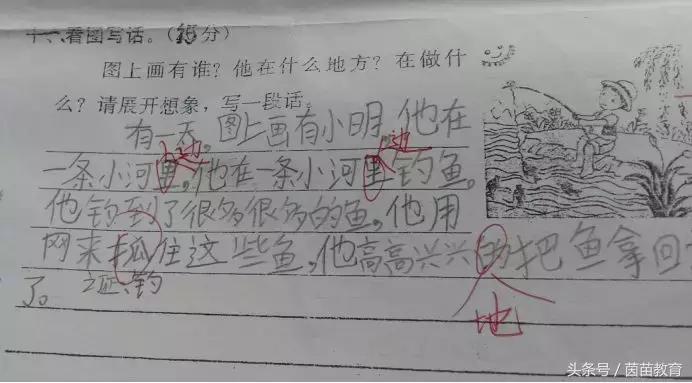 十一、看图写话。(15分)
图上画有谁？他在什么地方？在做什
么？请展开想象，写一段话。
有一天，图上画有小明，他在
一条小河里，他在一条小河里钓鱼。
边 边
他钓到了很多很多的鱼。他用
网来抓住这些鱼，他高高兴兴的把鱼拿回
地
了。
头条号／茵苗教育